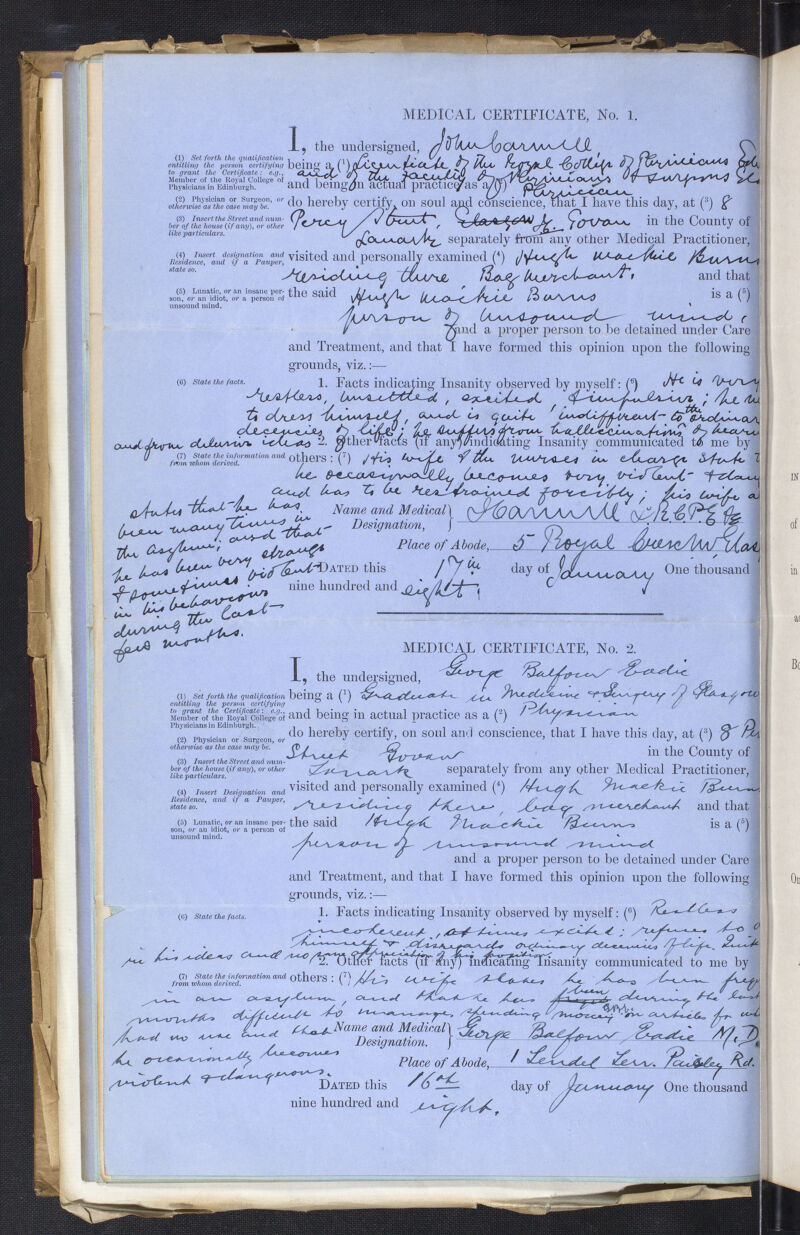 MEDICAL CERTIFICATE, No. 1.
I, the undersigned, John Carswell
(1) Set forth the qualification
entitling the person certifying
to grant the Certificate: e.g.,
Member of the Royal College of
Physicians in Edinburgh.
being a (1) Licentiate of the Royal College of Physicians
and of the Faculty of Physicians & Surgeons
and being in actual practice as a (2) Physician
(2) Physician or Surgeon, or
otherwise as the case may be.
do hereby certify, on soul and conscience, that I have this day, at (3) 8
(3) Insert the Street and num-
ber of the house (if any), or other
like particulars.
Percy Street, Glasgow Govan in the County of
Lanark separately from any other Medical Practitioner,
(4) Insert designation and
Residence, and if a Pauper,
state so.
visited and personally examined (4) Hugh Mackie Burns
residing there, Bag Merchant. and that
(5) Lunatic, or an insane per-
son, or an idiot, or a person of
unsound mind.
the said Hugh Mackie Burns is a (5)
person of unsound mind,
and a proper person to be detained under Care
and Treatment, and that I have formed this opinion upon the following
grounds, viz.:—
(6) State the facts.
1. Facts indicating Insanity observed by myself: (6) He is very
restless, unsettled, excited, & impulsive; he
to dress himself, and is quite indifferent to the ordinary
decencies of life; he suffers from hallucinations of hearing
and from delusive ideas 2. Other facts (if any) indicating Insanity communicated to me by
(7) State the information and
from whom derived.
others: (7) His wife & the nurses in charge state
he occasionally becomes very violent &
and has to be restrained forcibly; his wife
states that he has
been many times in
the asylum; and that
he has been very strange
& sometimes violent
in his behaviour
during the last
few months.
Name and Medical
Designation, J Carswell L.R.C.P.E &c
Place of Abode, 5 Royal Cresc W.
DATED this 17th day of January One thousand
nine hundred and eight.
MEDICAL CERTIFICATE, No. 2.
I, the undersigned, George Balfour Eadie
(1) Set forth the qualification
entitling the person certifying
to grant the Certificate: e.g.,
Member of the Royal College of
Physicians in Edinburgh.
being a (1) Graduate in Medicine & Surgery of Glasgow
and being in actual practice as a (2) Physician
(2) Physician or Surgeon, or
otherwise as the case may be.
do hereby certify, on soul and conscience, that I have this day, at (3) 8
(3) Insert the Street and num-
ber of the house (if any), or other
like particulars.
Street Govan in the County of
Lanark separately from any other Medical Practitioner,
(4) Insert Designation and
Residence, and if a Pauper,
state so.
visited and personally examined (4) Hugh Mackie Burns
residing there, bag merchant and that
(5) Lunatic, or an insane per-
son, or an idiot, or a person of
unsound mind.
the said Hugh Mackie Burns is a (5)
person of unsound mind
and a proper person to be detained under Care
and Treatment, and that I have formed this opinion upon the following
grounds, viz.:—
(6) State the facts.
1. Facts indicating Insanity observed by myself: (6) Restless
incoherent, at times excited; refuses to
himself & disregards ordinary decencies of life. Quite
in his ideas and no appreciation of his position
2. Other facts (if any) indicating Insanity communicated to me by
(7) State the information and
from whom derived.
others: (7) His wife states he has been
in an asylum, and that he has been during the last
months difficult to manage, spending money on articles for
had no use and that
he occasionally becomes
violent & dangerous.
Name and Medical
Designation. George Balfour Eadie M.D.
Place of Abode, 1 Lendel Terr. Paisley Rd.
DATED this 16th day of January One thousand
nine hundred and eight.